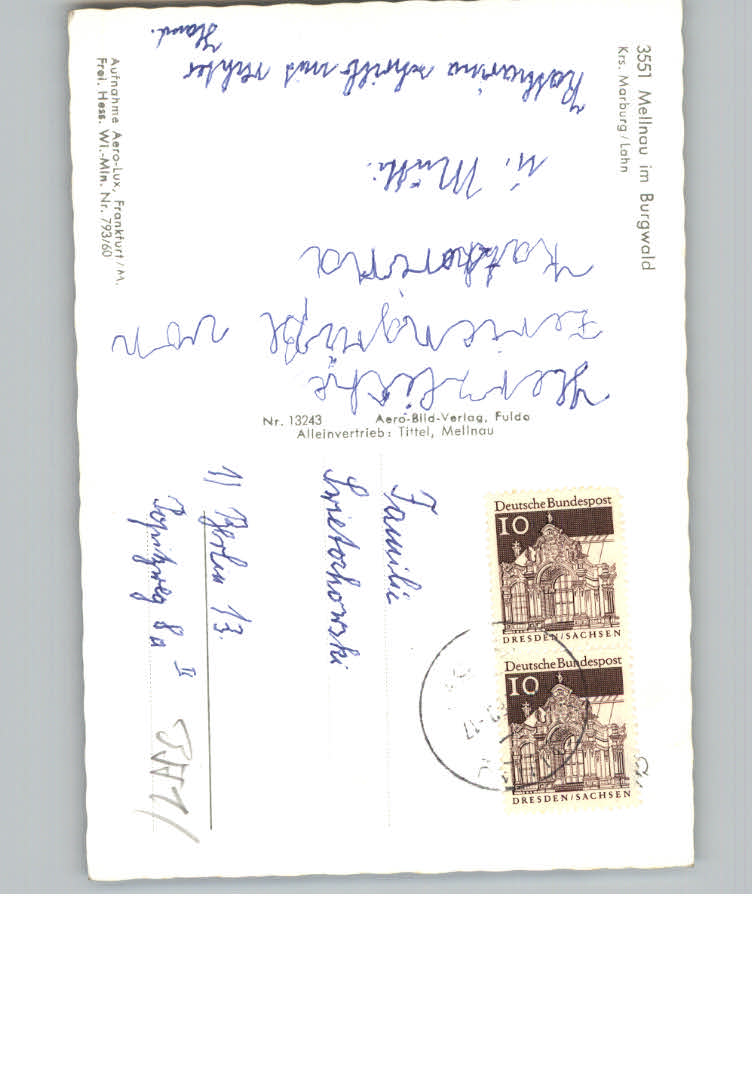 3551 Mellnau im Burgwald
Krs. Marburg / Lahn
Herzliche
Feriengrüße von
Katharina
u. Mutti.
Katharina schrieb mit rechter
Hand.
Aufnahme Aero-Lux, Frankfurt / M.
Frei. Hess. Wi.-Min. Nr. 793/60
Nr. 13243 Aero-Bild-Verlag, Fulda
Alleinvertrieb: Tittel, Mellnau
Deutsche Bundespost
10
DRESDEN/SACHSEN
Deutsche Bundespost
10
DRESDEN/SACHSEN
Familie
Swietochowski
1) Berlin 13.
Popitzweg 8a II